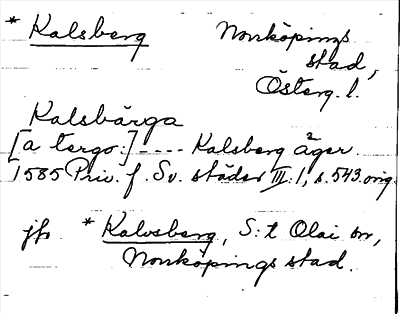 * Kalsberg Norrköpings
stad,
Österg. l.
Kalsbärga
[a tergo:] ---- Kalsberg äger
1585 Priv. f. Sv. städer III:1, s. 543. orig.
jfr * Kalvsberg, S:t Olai sn,
Norrköpings stad.